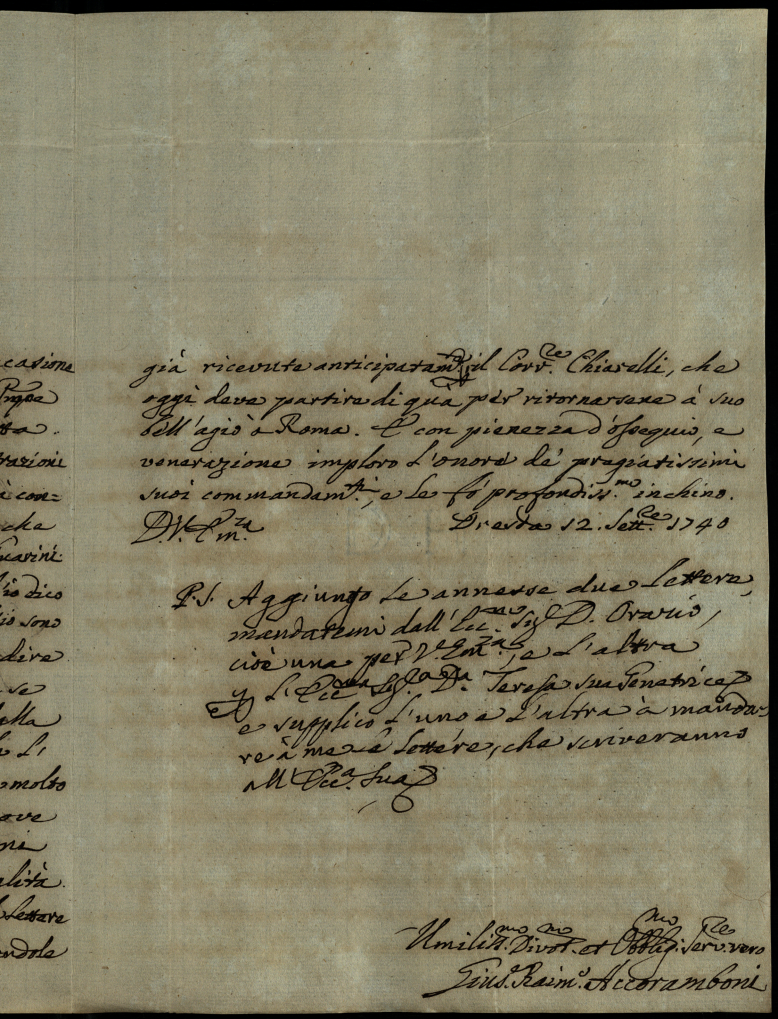 casione
tta.
razioni
à con=
che
Guarini
io dico
io sono
dire
se
della
Li
molto
ove
ni
alità.
Lettere
ndole
già ricevute anticipatam.te il Corr.re Chiarelli, che
oggi deve partire di quà per ritornarsene à suo
bell'agio à Roma. E con pienezza d'ossequio, e
venerazione imploro l'onore de' pregiatissimi
suoi commandam.ti, e le fò profondiss.mo inchino.
D. V. Em.za Dresda 12. Sett.re 1740
P.S. Aggiungo le annesse due Lettere,
mandatemi dall'Ecc.mo Sig.r D. Orazio,
cioè una per V. Em.za, e l'altra
p L'Ecc.ma Sig.ra D.a Teresa sua Genetrice,
e supplico l'uno e l'altra à manda-
re à me le lettere, che scriveranno
all'Ecc.a Sua
Umiliss.mo Divot.mo et Obblig.mo Serv.re vero
Gius.e Raim.o Accoramboni